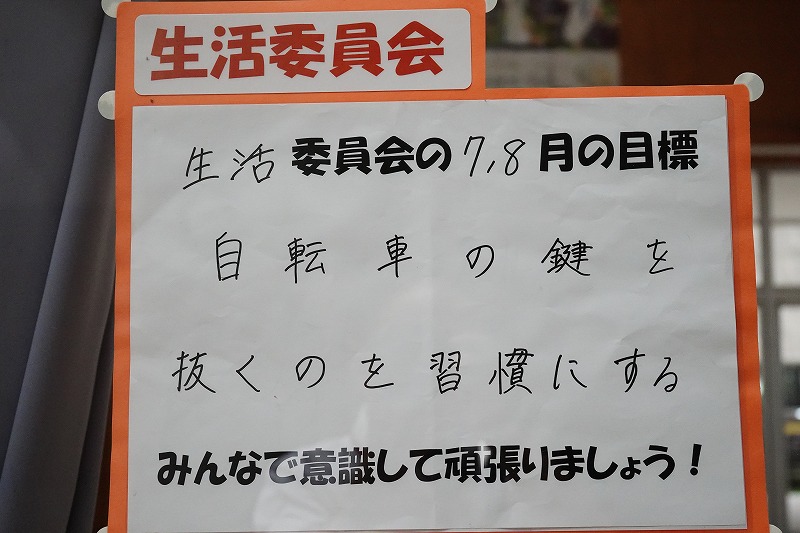 生活委員会
生活 委員会の7,8月の目標
自転車の鍵を
抜くのを習慣にする
みんなで意識して頑張りましょう！